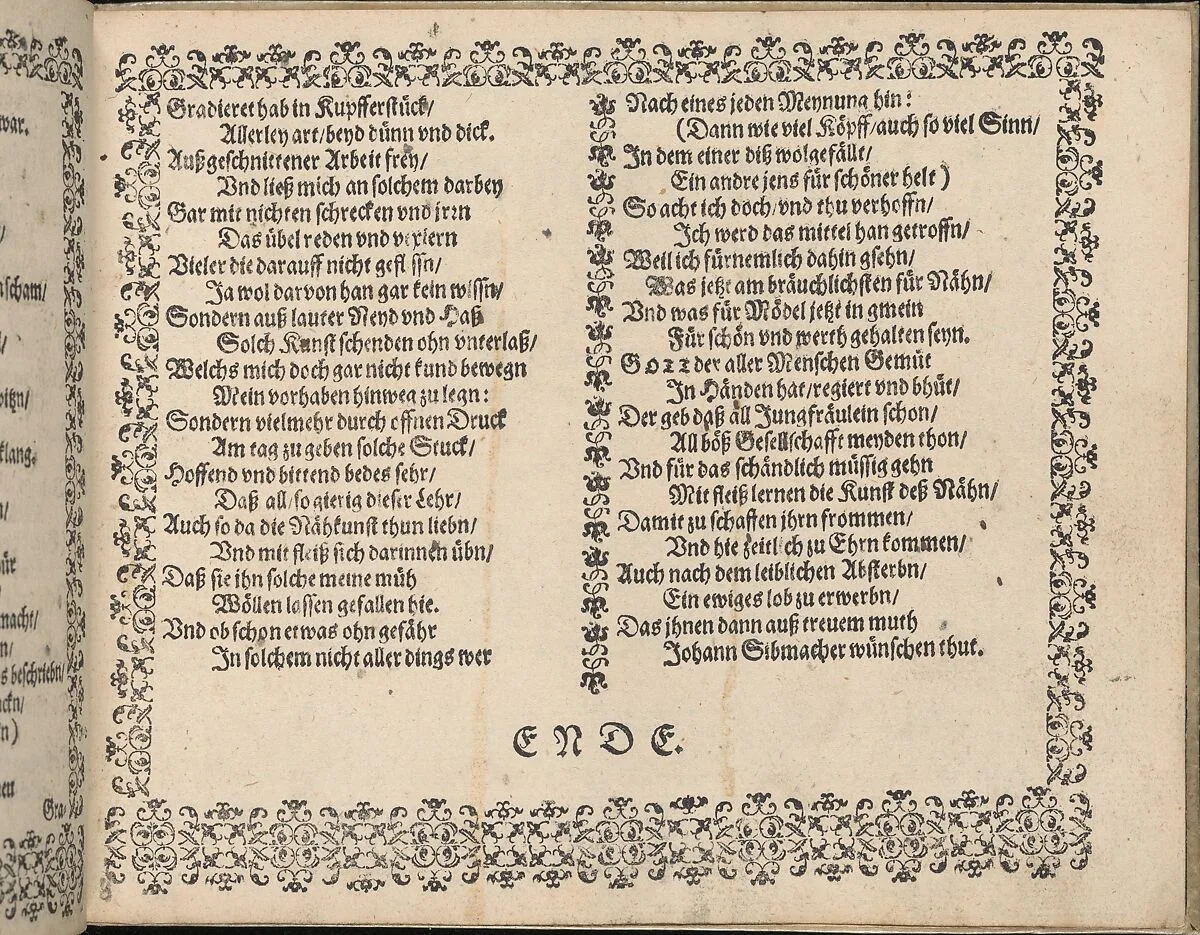 war.
nscham/
vitzn/
klang.
ür
macht/
n/
s beschriebn/
ackn/
n)
en
Gra-
Gradieret hab in Kupfferstück/
Allerley art/beyd dünn vnd dick.
Außgeschnittener Arbeit frey/
Vnd ließ mich an solchem darbey
Gar mit nichten schrecken vnd jrrn
Das übel reden vnd vexiern
Vieler die darauff nicht geflissn/
Ja wol darvon han gar kein wissn/
Sondern auß lauter Neyd vnd Haß
Solch Kunst schenden ohn vnterlaß/
Welchs mich doch gar nicht kund bewegn
Mein vorhaben hinweg zu legn:
Sondern vielmehr durch offnen Druck
Am tag zu geben solche Stuck/
Hoffend vnd bittend bedes sehr/
Daß all/so gierig dieser Lehr/
Auch so da die Nähkunst thun liebn/
Vnd mit fleiß sich darinnen übn/
Daß sie ihn solche meine müh
Wöllen lassen gefallen hie.
Vnd ob schon etwas ohn gefähr
In solchem nicht aller dings wer
Nach eines jeden Meynung hin:
(Dann wie viel Köpff/auch so viel Sinn/
In dem einer diß wolgefällt/
Ein andre jens für schöner helt)
So acht ich doch/vnd thu verhoffn/
Ich werd das mittel han getroffn/
Weil ich fürnemlich dahin gsehn/
Was jetzt am bräuchlichsten für Nähn/
Vnd was für Mödel jetzt in gmein
Für schön vnd werth gehalten seyn.
GOTT der aller Menschen Gemüt
In Händen hat/regiert vnd bhüt/
Der geb daß all Jungfräulein schon/
All böß Gesellschafft meyden thon/
Vnd für das schändlich müssig gehn
Mit fleiß lernen die Kunst deß Nähn/
Damit zu schaffen jhrn frommen/
Vnd hie zeitlich zu Ehrn kommen/
Auch nach dem leiblichen Absterbn/
Ein ewiges lob zu erwerbn/
Das jhnen dann auß treuem muth
Johann Sibmacher wünschen thut.
ENDE.